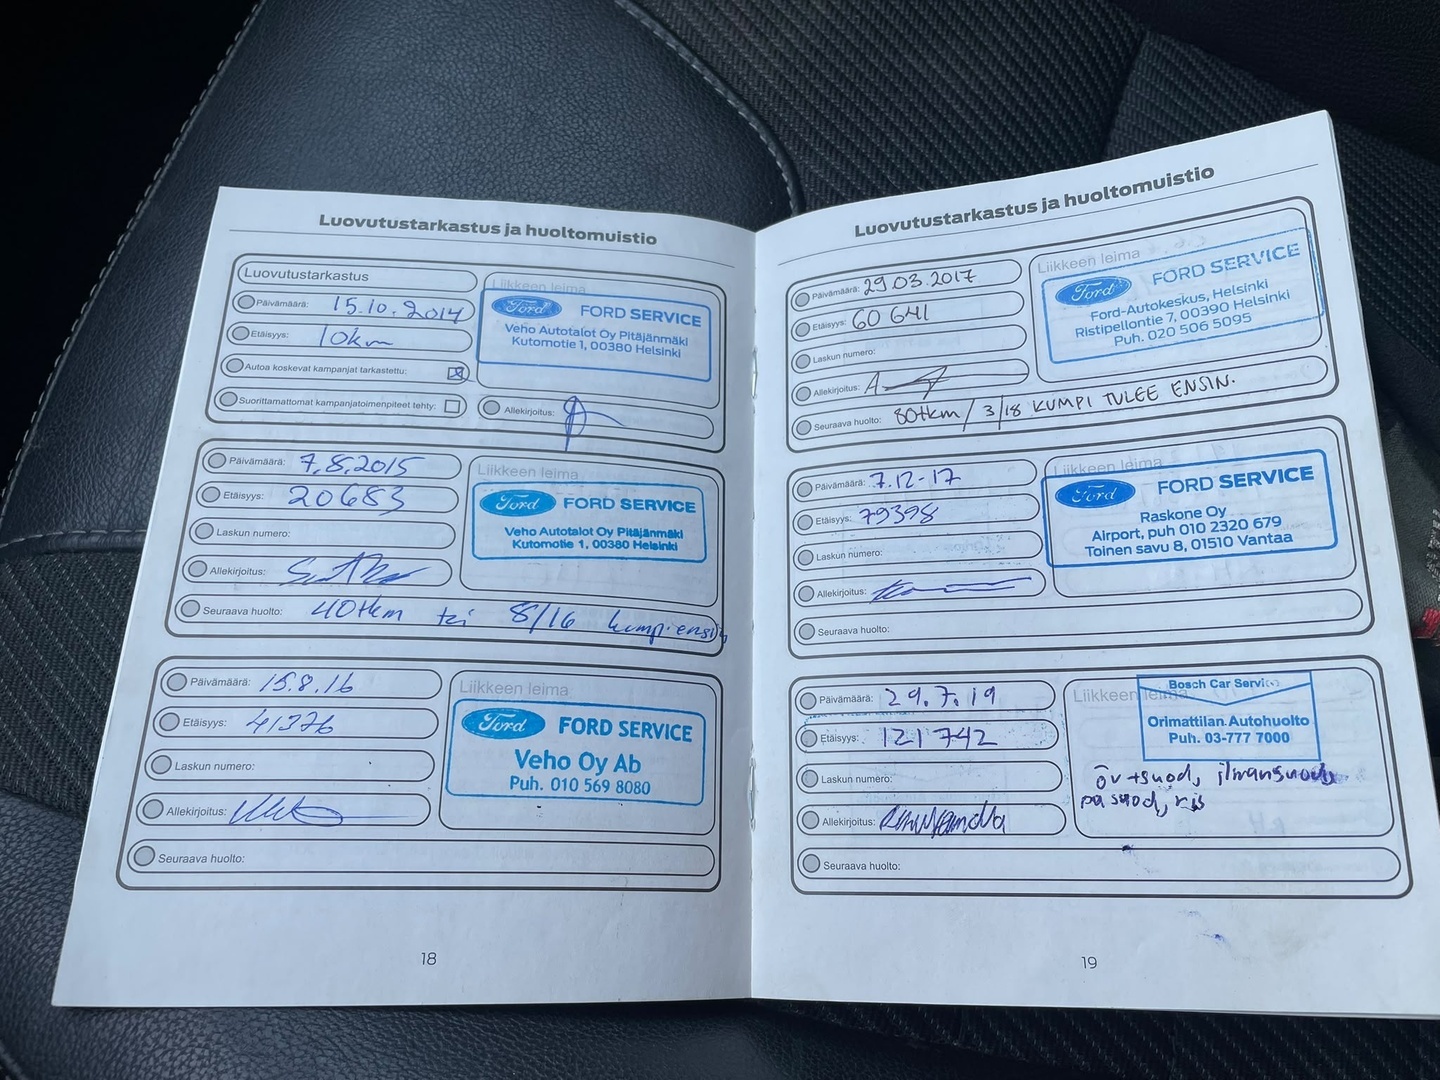 Luovutustarkastus ja huoltomuistio
Luovutustarkastus
Päivämäärä: 15.10.2014
Etäisyys: 10km
Autoa koskevat kampanjat tarkastettu:
Suorittamattomat kampanjatoimenpiteet tehty:
Liikkeen leima
Ford FORD SERVICE
Veho Autotalot Oy Pitäjänmäki
Kutomotie 1, 00380 Helsinki
Allekirjoitus:
Päivämäärä: 7.8.2015
Etäisyys: 20683
Laskun numero:
Allekirjoitus:
Liikkeen leima
Ford FORD SERVICE
Veho Autotalot Oy Pitäjänmäki
Kutomotie 1, 00380 Helsinki
Seuraava huolto: 40tkm tai 8/16 kumpi ensin
Päivämäärä: 15.8.16
Etäisyys: 41376
Laskun numero:
Allekirjoitus:
Liikkeen leima
Ford FORD SERVICE
Veho Oy Ab
Puh. 010 569 8080
Seuraava huolto:
18
Luovutustarkastus ja huoltomuistio
Päivämäärä: 29.03.2017
Etäisyys: 60 641
Laskun numero:
Allekirjoitus:
Liikkeen leima
Ford FORD SERVICE
Ford-Autokeskus, Helsinki
Ristipellontie 7, 00390 Helsinki
Puh. 020 506 5095
Seuraava huolto: 80tkm / 3/18 KUMPI TULEE ENSIN.
Päivämäärä: 7.12-17
Etäisyys: 79398
Laskun numero:
Allekirjoitus:
Liikkeen leima
Ford FORD SERVICE
Raskone Oy
Airport, puh 010 2320 679
Toinen savu 8, 01510 Vantaa
Seuraava huolto:
Päivämäärä: 29.7.19
Etäisyys: 121742
Laskun numero:
Allekirjoitus:
Liikkeen leima
Bosch Car Service
Orimattilan Autohuolto
Puh. 03-777 7000
öv +suod, ilmansuod
pa suod, ris
Seuraava huolto:
19